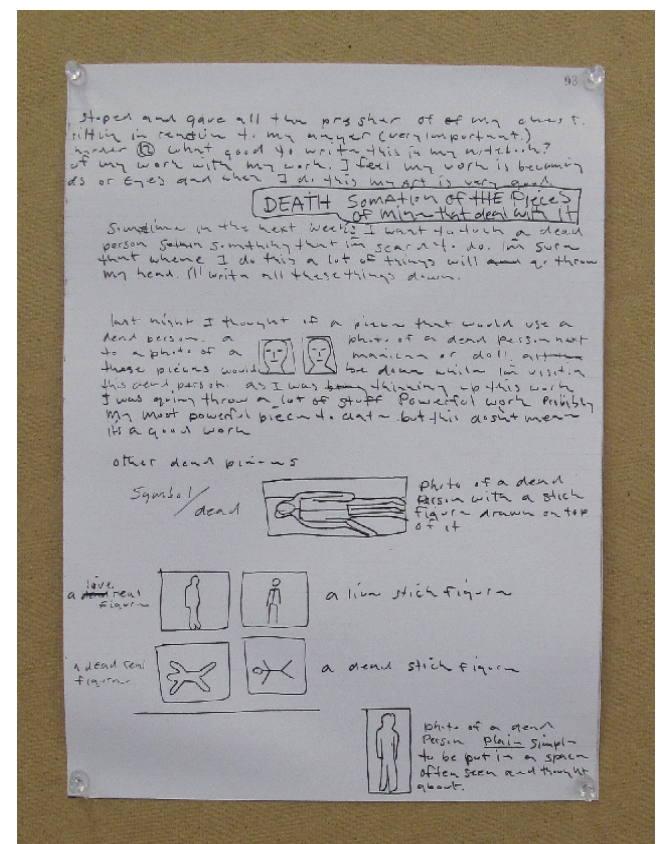 93
stoped and gave all the presher of my chest.
sittin in reaction to my anger (very important.)
harder what good to write this in my notebook?
of my work with my work I feel my work is becoming
ds or Eyes and when I do this my art is very good
DEATH Somation of THE PieceS
of mine that deal with it
Sometime in the next weeks I want to tuch a dead
person somthing that im scared to do. Im sure
that whene I do this a lot of things will go throw
my head. I'll write all these things down.
last night I thought of a piece that would use a
dead person. a photo of a dead person next
to a photo of a manican or doll.
these pieces would be done while Im visitin
this dead person. as I was thinning up this work
I was going throw a lot of stuff Powerful work Probibly
My most powerful piece to date but this dosnt mene
its a good work
other dead pieces
Symbol/
dead
photo of a dead
Person with a stick
figure drawn on top
of it
a live real
figure
a live stick figure
a dead real
figure
a dead stick figure
photo of a dead
Person plain simple
to be put in a space
often seen and thought
about.